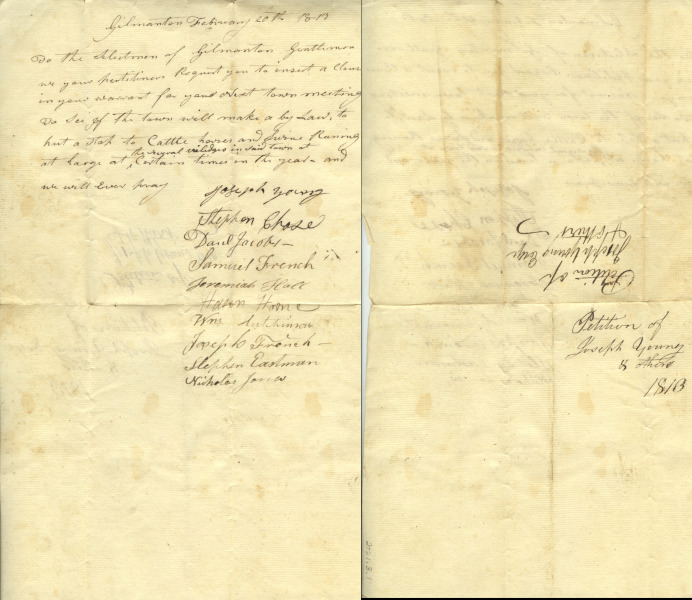 Gilmanton February 20th 1813
To the Selectmen of Gilmanton Gentlemen
we your Petitiners Request you to insert a Clause
in your warrant for your Next town meeting
To See if the town will make a by Law, to
put a Stop to Cattle horses and Swine Running
the several villages in said town at
at Large at Certain times in the year - and
we will Ever pray
Joseph Young
Stephen Chase
Danl Jacobs
Samuel French
Jeremiah Hall
Horne
Wm Hutchinson
Joseph French
Stephen Eastman
Nicholas Jones
Petition of
Joseph Young Esqr
& others
Petition of
Joseph Young
& others
1813